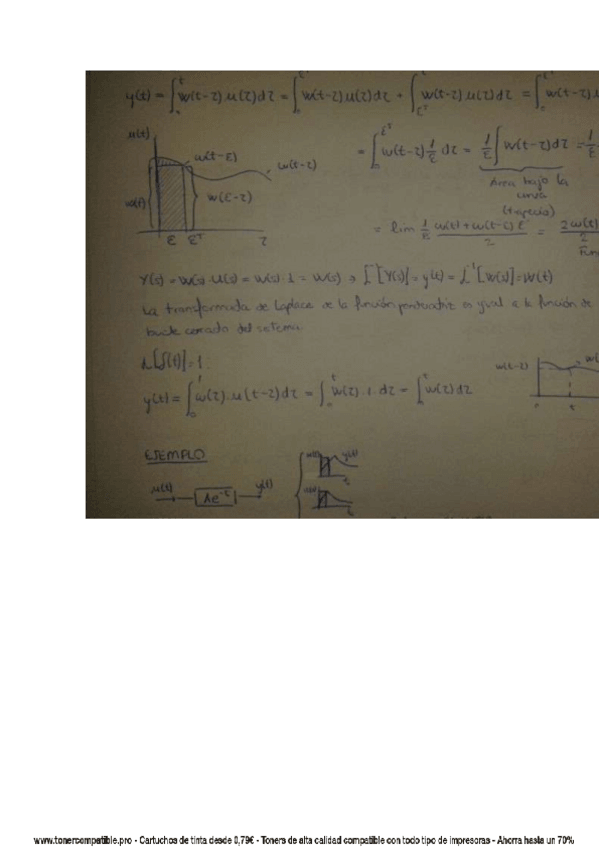 y(t) = ∫₀ᵗ w(t-τ) u(τ) dτ = ∫ w(t-τ) u(τ) dτ + ∫ w(t-τ) u(τ) dτ = ∫ w(t-τ)
u(t)
w(t-ε)
w(t-τ)
w(t)
w(ε-τ)
ε ε⁺ τ
= ∫ w(t-τ) 1/ε dτ = 1/ε ∫ w(t-τ) dτ = 1/ε
Área bajo la
curva
(trapecio)
= lim 1/ε w(t) + w(t-ε) ε / 2 = 2w(t) / 2
Y(s) = W(s) · U(s) = W(s) · 1 = W(s) ⇒ L⁻¹[Y(s)] = y(t) = L⁻¹[W(s)] = w(t)
La transformada de Laplace de la función es igual a la función de
bucle cerrado del sistema.
L[δ(t)] = 1
y(t) = ∫₀ᵗ w(τ) · u(t-τ) dτ = ∫₀ᵗ w(τ) · 1 · dτ = ∫₀ᵗ w(τ) dτ
w(t-τ)
EJEMPLO
u(t) Ae⁻ᵗ y(t)
u(t) y(t)
u(t)
www.tonercompatible.pro - Cartuchos de tinta desde 0,79€ - Toners de alta calidad compatible con todo tipo de impresoras - Ahorra hasta un 70%